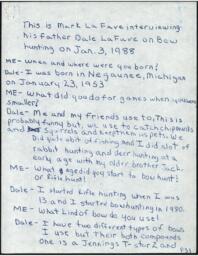 This is Mark LaFave interviewing
his father Dale LaFave on Bow
hunting on Jan. 3, 1988
ME- When and where were you born?
Dale- I was born in Negaunee, Michigan
on January 23, 1953
ME- What did you do for games when you were
smaller?
Dale- Me and my friends use to, This is
probably funny but we use to catch chipmunks
and squirrels and keep them as pets. We
did quite abit of fishing and I did alot of
rabbit hunting and deer hunting at a
early age with my older brother Jack.
ME- What age did you start to bow hunt?
or Rifle hunt?
Dale- I started Rifle hunting when I was
13 and I started bow hunting in 1980.
ME- What kind of bow do you use?
Dale- I have two different types of bows
I use but their both Compounds
one is a Jennings T-star 2 and